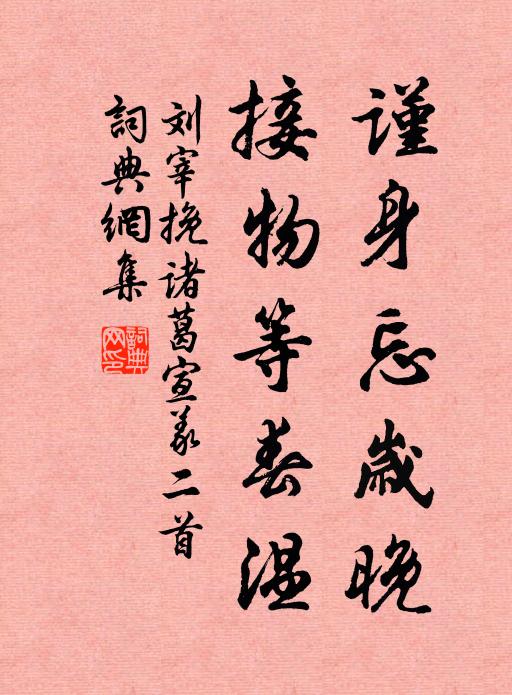 谨身忘岁晚
接物等春温
刘宰挽诸葛宣义二首
詞典網集
詞典网印